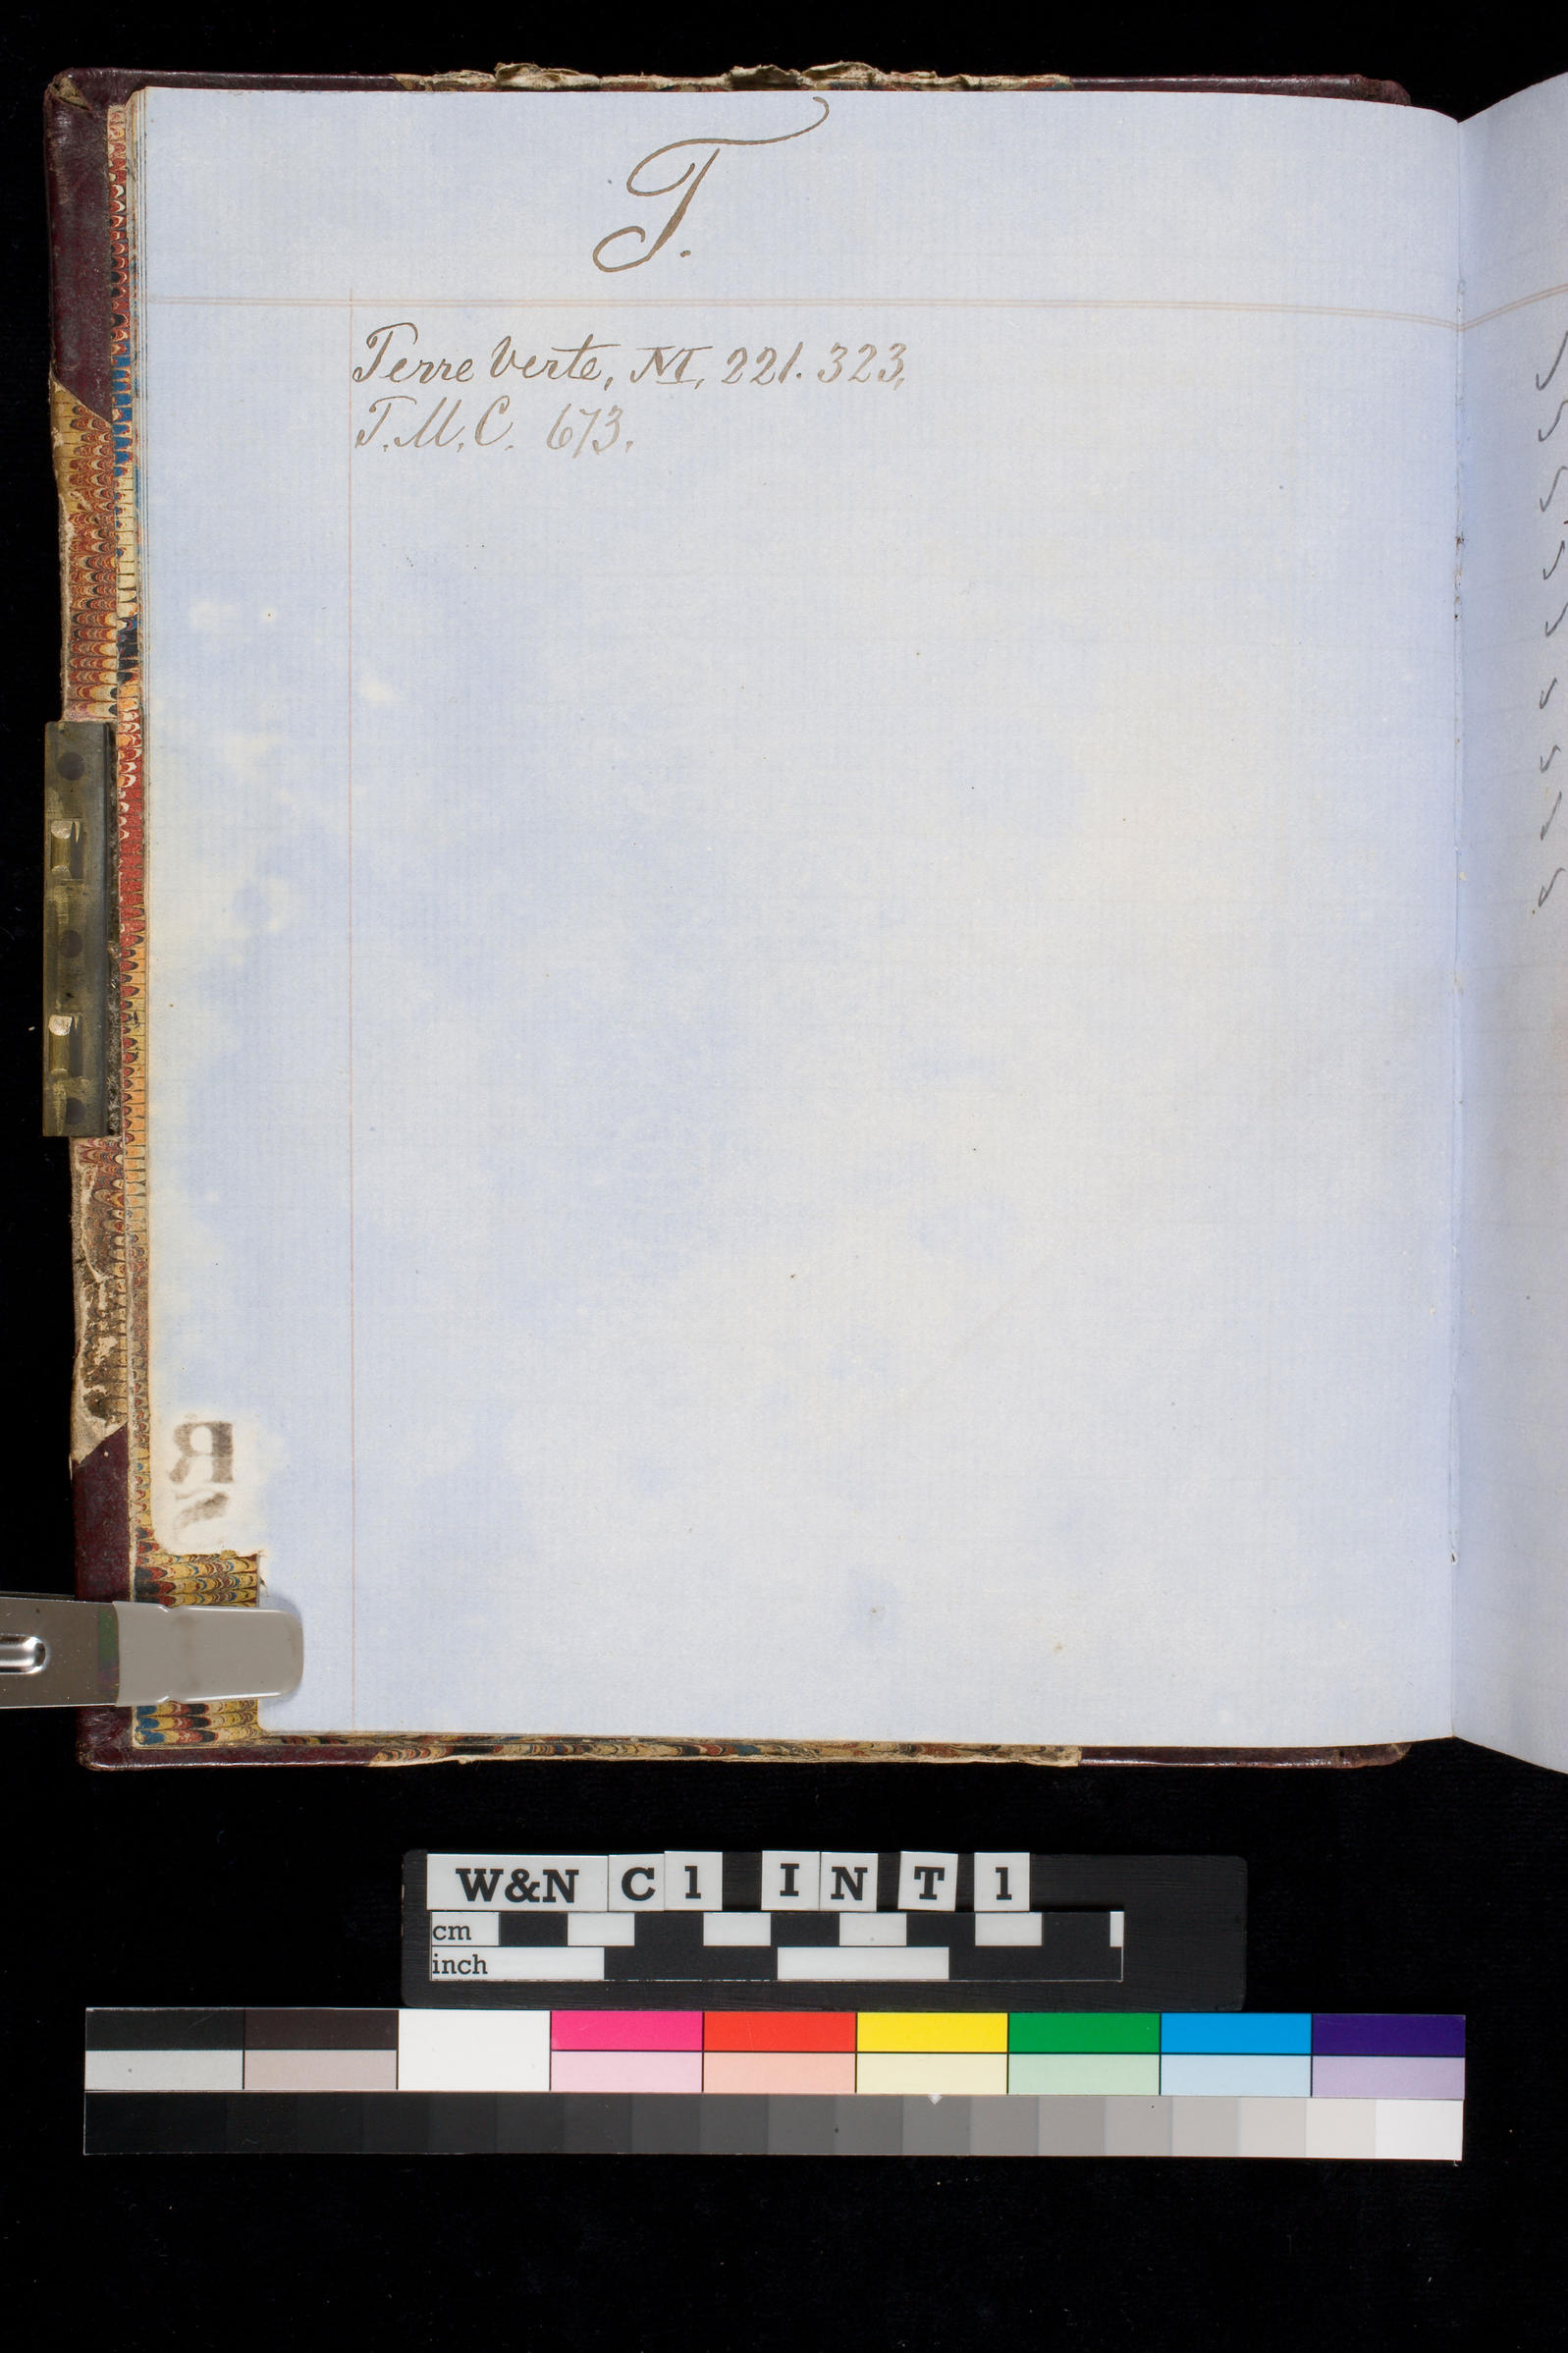 T.
Terre Verte, VI, 221. 323,
T.M.C. 673.
R
W&N C1 IN T 1
cm
inch